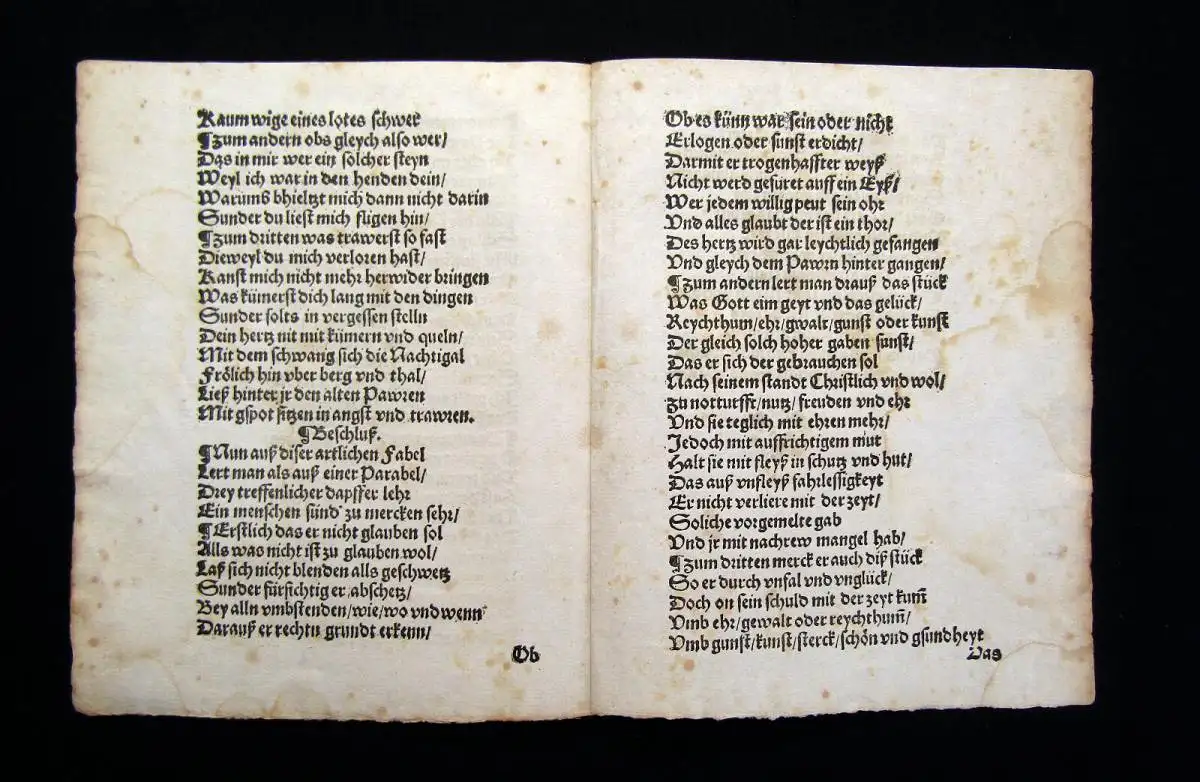 Kaum wige eines lotes schwer
¶Zum andern obs gleych also wer/
Das in mir wer ein solcher steyn
Weyl ich war in den henden dein/
Warumb bhieltzt mich dann nicht darin
Sunder du liest mich fligen hin/
¶Zum dritten was trawerst so fast
Dieweyl du mich verloren hast/
Kanst mich nicht mehr herwider bringen
Was kümerst dich lang mit den dingen
Sunder solts in vergessen stelln
Dein hertz nit mit kümern vnd queln/
Mit dem schwang sich die Nachtigal
Frölich hin vber berg vnd thal/
Ließ hinter jr den alten Pawren
Mit gspot sitzen in angst vnd trawren.
¶Beschluß.
¶Nun auß diser artlichen Fabel
Lert man als auß einer Parabel/
Drey treffenlicher dapffer lehr
Ein menschen sünd zu mercken sehr/
¶Erstlich das er nicht glauben sol
Alls was nicht ist zu glauben wol/
Laß sich nicht blenden alls geschwetz
Sunder fürsichtig er abschetz/
Bey alln vmbstenden/wie/wo vnd wenn
Darauß er rechtn grundt erkenn/
Ob
Ob es künn war sein oder nicht
Erlogen oder sunst erdicht/
Darmit er trogenhaffter weyß
Nicht werd gefüret auff ein Eyß/
Wer jedem willig peut sein ohr
Vnd alles glaubt der ist ein thor/
Des hertz wird gar leychtlich gefangen
Vnd gleych dem Pawrn hinter gangen/
¶Zum andern lert man drauß das stück
Was Gott eim geyt vnd das gelück/
Reychthum/ehr/gwalt/gunst oder kunst
Der gleich solch hoher gaben sunst/
Das er sich der gebrauchen sol
Nach seinem standt Christlich vnd wol/
Zu notturfft/nutz/freuden vnd ehr
Vnd sie teglich mit ehren mehr/
Jedoch mit auffrichtigem mut
Halt sie mit fleyß in schutz vnd hut/
Das auß vnfleyß fahrlessigkeyt
Er nicht verliere mit der zeyt/
Soliche vorgemelte gab
Vnd jr mit nachrew mangel hab/
¶Zum dritten merck er auch diß stück
So er durch vnfal vnd vnglück/
Doch on sein schuld mit der zeyt kum̃
Vmb ehr/gewalt oder reychthum̃/
Vmb gunst/kunst/sterck/schön vnd gsundheyt
Das